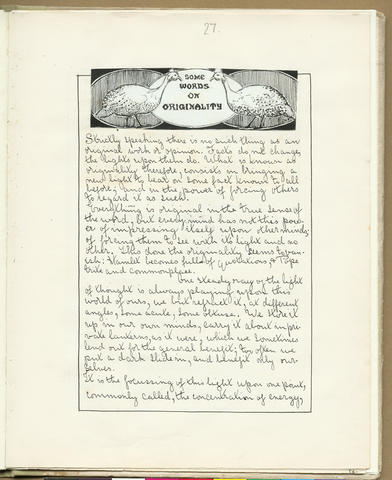 27.
SOME
WORDS
ON
ORIGINALITY
Strictly speaking there is no such thing as an
original work or opinion. Facts do not change,
the lights upon them do. What is known as
originality therefore, consists in bringing a
new light to bear on some fact known to all
before; and in the power of forcing others
to regard it as such.
Everything is original in the true sense of
the word, but every mind has not this pow-
er of impressing itself upon other minds,
of forcing them to see with its light and no
other. This done the originality seems to van-
ish: Hamlet becomes full of quotations, & Pope
trite and commonplace.
One steady ray of the light
of thought is always playing upon this
world of ours, we but refract it, at different
angles, some acute, some obtuse. We store it
up in our own minds, carry it about in pri-
vate lanterns, as it were, which we sometimes
lend out for the general benefit; too often we
put a dark slide in, and benefit only our-
selves.
It is the focussing of this light upon one point,
commonly called, the concentration of energy,